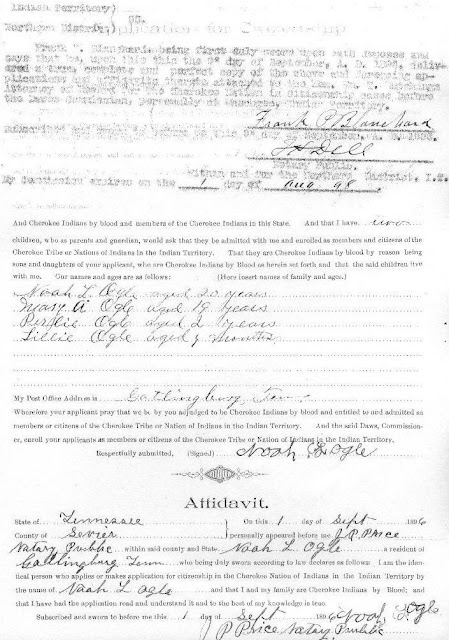 Indian Territory)
SS.
Northern District) Application for Citizenship
Frank P. Blanchard, being first duly sworn upon oath deposes and
says that he, upon this the 9" day of September, A. D. 1896, deliv-
ered a true, complete and perfect copy of the above and foregoing ap-
plication
attorney Cherokee Citizenship cases before
the Dawes Commission, personally at Indian Territory.
Frank P. Blanchard
Subscribed and sworn to before me this September, A. D. 1896.
Dell
Notary Public
Within and for the Northern District, I.T.
My Commission expires on the 1 day of Aug 98
And Cherokee Indians by blood and members of the Cherokee Indians in this State. And that I have two
children, who as parents and guardian, would ask that they be admitted with me and enrolled as members and citizens of the
Cherokee Tribe or Nations of Indians in the Indian Territory. That they are Cherokee Indians by blood by reason being
sons and daughters of your applicant, who are Cherokee Indians by Blood as herein set forth and that the said children live
with me. Our names and ages are as follows: (Here insert names of family and ages.)
Noah L. Ogle aged 20 years
Mary A. Ogle aged 19 years
Perlie Ogle aged 2 years
Lillie Ogle aged 9 months
My Post Office Address is Gatlingburg, Tenn.
Wherefore your applicant pray that we be by you adjudged to be Cherokee Indians by blood and entitled to and admitted as
members or citizens of the Cherokee Tribe or Nation of Indians in the Indian Territory. And the said Daws, Commission-
er, enroll your applicants as members or citizens of the Cherokee Tribe or Nation of Indians in the Indian Territory.
Respectfully submitted, (Signed) Noah L Ogle
Affidavit.
State of Tennessee On this 1 day of Sept 1896
County of Sevier personally appeared before me J. P. Price
Notary Public within said county and State Noah L Ogle a resident of
Gatlingburg Tenn who being duly sworn according to law declares as follows: I am the iden-
tical person who applies or makes application for citizenship in the Cherokee Nation of Indians in the Indian Territory by
the name of Noah L Ogle and that I and my family are Cherokee Indians by Blood; and
that I have had the application read and understand it and to the best of my knowledge is true.
Subscribed and sworn to before me this 1 day of Sept 1896 Noah L Ogle
J P Price Notary Public